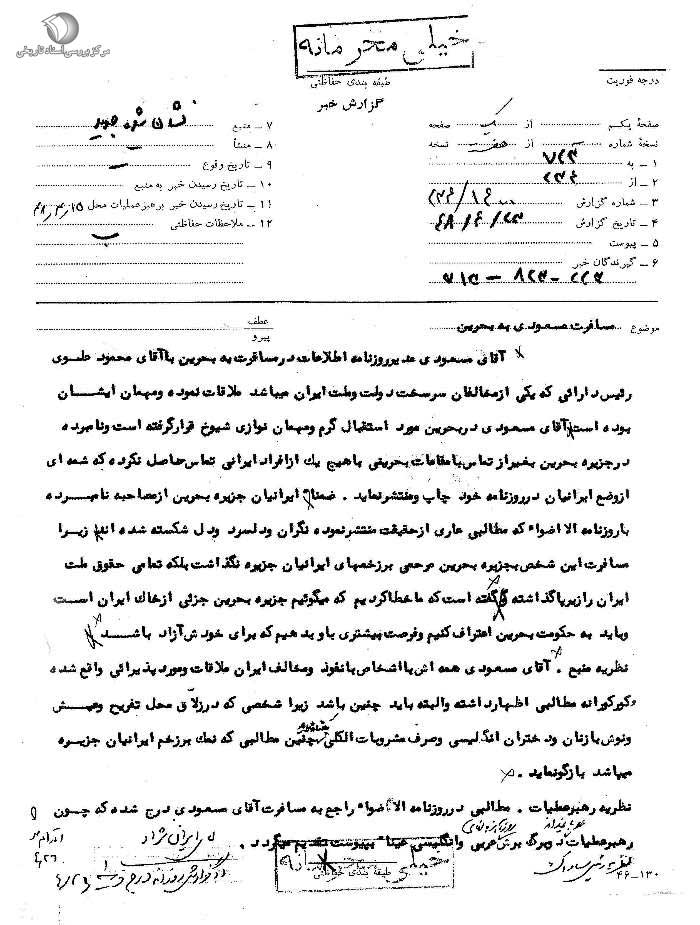 مرکز بررسی اسناد تاریخی
خیلی محرمانه
طبقه بندی حفاظتی
گزارش خبر
درجه فوریت
صفحه یکم از یک صفحه
نسخه شماره از هفت نسخه
۱ ـ به ۷۲۳
۲ ـ از
۳ ـ شماره گزارش
۴ ـ تاریخ گزارش
۵ ـ پیوست
۶ ـ گیرندگان خبر
۷ ـ منبع
۸ ـ منشأ
۹ ـ تاریخ وقوع
۱۰ ـ تاریخ رسیدن خبر به منبع
۱۱ ـ تاریخ رسیدن خبر برهبر عملیات محل ۴۸٫۴٫۱۵
۱۲ ـ ملاحظات حفاظتی
موضوع مسافرت مسعودی به بحرین
عطف
پیرو
آقای مسعودی مدیر روزنامه اطلاعات در مسافرت به بحرین با آقای محمود علوی
رئیس دارائی که یکی از مخالفان سرسخت دولت وملت ایران میباشد ملاقات نموده ومهمان ایشان
بوده است آقای مسعودی در بحرین مورد استقبال گرم ومهمان نوازی شیوخ قرار گرفته است ونامبرده
در جزیره بحرین بغیر از تماس با مقامات بحرینی با هیچ یك از افراد ایرانی تماس حاصل نکرده که شمه ای
از وضع ایرانیان در روزنامه خود چاپ ومنتشر نماید . ضمنا ایرانیان جزیره بحرین از مصاحبه نامبرده
با روزنامه الاضواء که مطالبی عاری از حقیقت منتشر نموده نگران ودلسرد ودل شکسته شده اند زیرا
مسافرت این شخص بجزیره بحرین مرحمی برزخمهای ایرانیان جزیره نگذاشت بلکه تمامی حقوق ملت
ایران را زیر پا گذاشته و گفته است که ما خطا کردیم که میگوئیم جزیره بحرین جزئی از خاك ایران است
وباید به حکومت بحرین اعتراف کنیم وفرصت بیشتری باو بدهیم که برای خودش آزاد باشد
نظریه منبع . آقای مسعودی همه اش با اشخاص بانفوذ ومخالف ایران ملاقات ومورد پذیرائی واقع شده
وکورکورانه مطالبی اظهار داشته والبته باید چنین باشد زیرا شخصی که در زلاق محل تفریح وعیش
ونوش بازنان ودختران انگلیسی وصرف مشروبات الکلی چنین مطالبی که نمك برزخم ایرانیان جزیره
میباشد بازگو نماید .
نظریه رهبر عملیات . مطالبی در روزنامه الاضواء راجع به مسافرت آقای مسعودی درج شده که چون
رهبر عملیات دو برگ برش عربی وانگلیسی عینا بپیوست تقدیم میگردد .
خیلی محرمانه
طبقه بندی حفاظتی
۴۶-۱۳۰